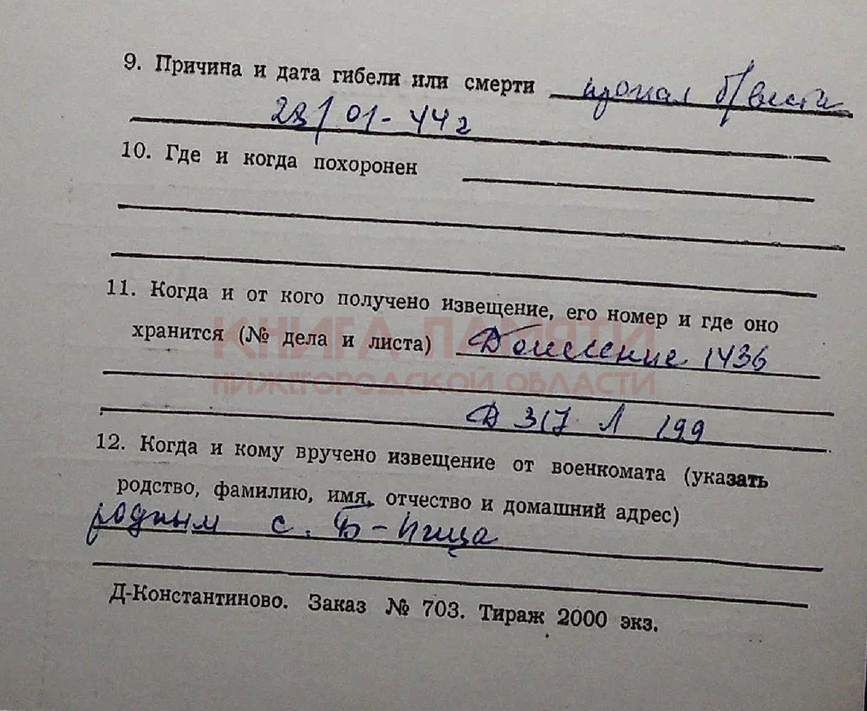 9. Причина и дата гибели или смерти пропал б/вести
28/01-44г
10. Где и когда похоронен
11. Когда и от кого получено извещение, его номер и где оно
хранится (№ дела и листа) 1436
КНИГА ПАМЯТИ
НИЖЕГОРОДСКОЙ ОБЛАСТИ
Д 317 Л 199
12. Когда и кому вручено извещение от военкомата (указать
родство, фамилию, имя, отчество и домашний адрес)
родным с. Б-
Д-Константиново. Заказ № 703. Тираж 2000 экз.